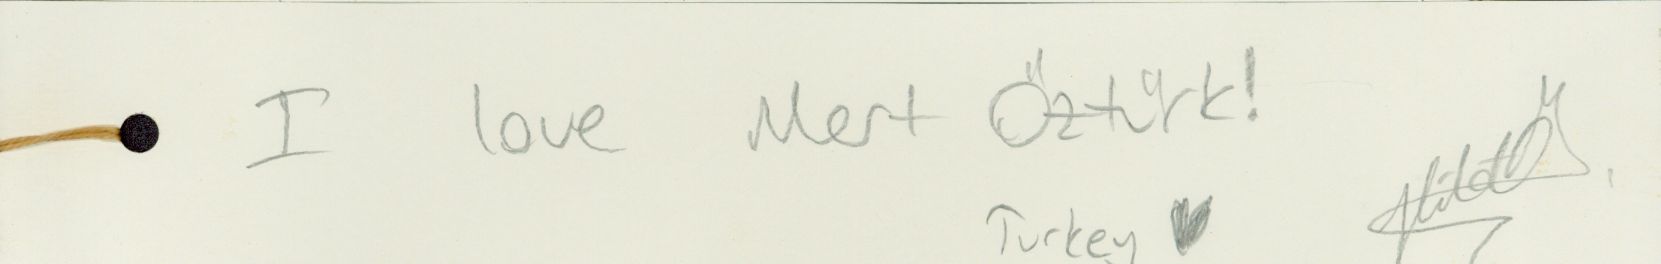 I love Mert Öztürk!
Turkey ♥